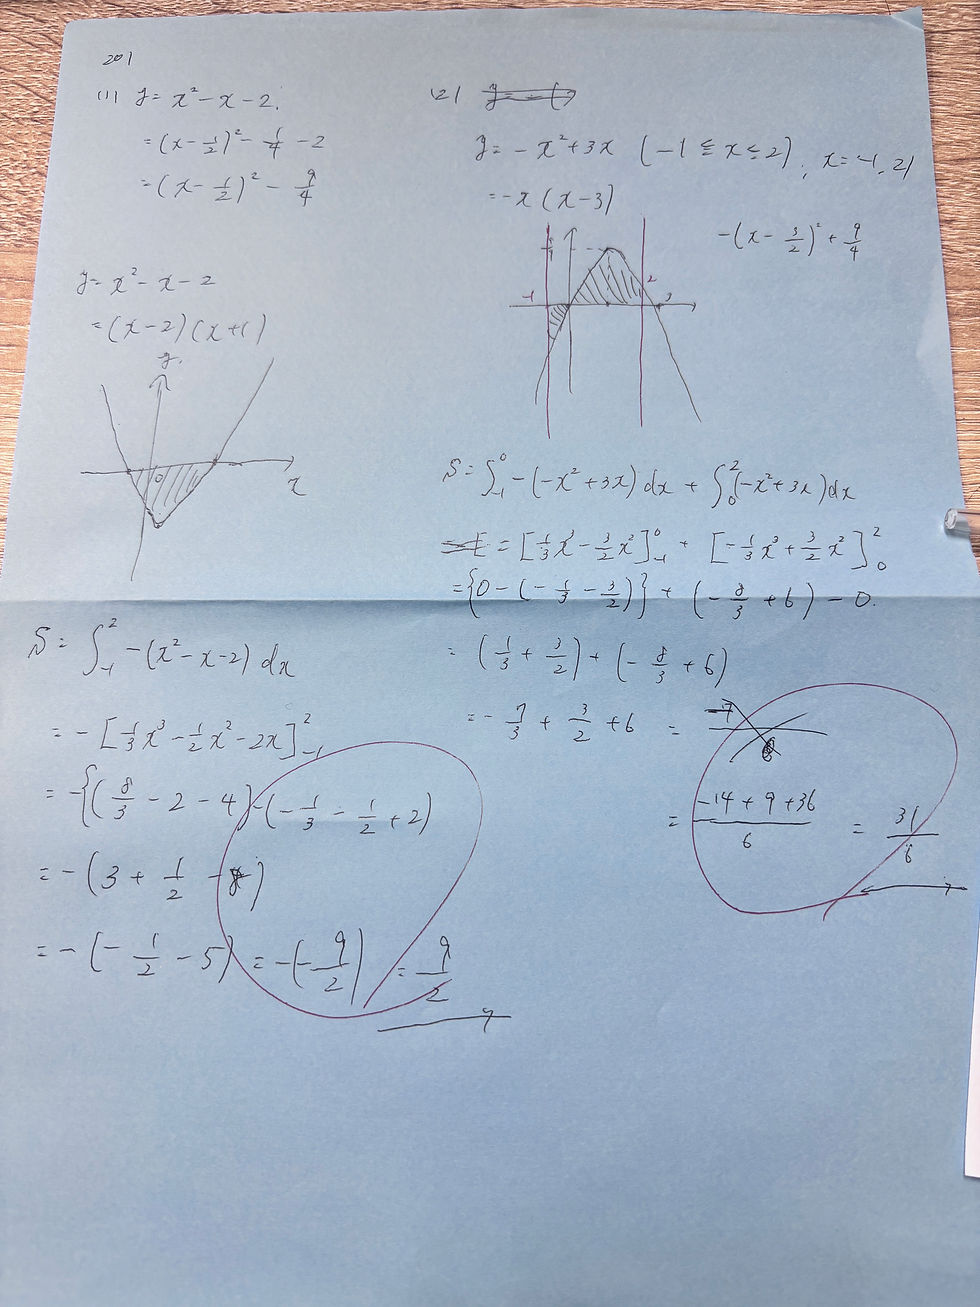 201
(1) y = x² - x - 2.
= (x - 1/2)² - 1/4 - 2
= (x - 1/2)² - 9/4
y = x² - x - 2
= (x - 2)(x + 1)
y
0
x
S = ∫₋₁² -(x² - x - 2) dx
= -[1/3 x³ - 1/2 x² - 2x]₋₁²
= -{(8/3 - 2 - 4) - (-1/3 - 1/2 + 2)
= -(3 + 1/2 - 8)
= -(-1/2 - 5) = -(-9/2) = 9/2
(2)
y = -x² + 3x (-1 ≦ x ≦ 2), x = -1, 2
= -x(x - 3)
-(x - 3/2)² + 9/4
9/4
-1
2
3
S = ∫₋₁⁰ -(-x² + 3x) dx + ∫₀² (-x² + 3x) dx
= [1/3 x³ - 3/2 x²]₋₁⁰ + [-1/3 x³ + 3/2 x²]₀²
= {0 - (-1/3 - 3/2)} + (-8/3 + 6) - 0.
= (1/3 + 3/2) + (-8/3 + 6)
= -7/3 + 3/2 + 6 =
= (-14 + 9 + 36)/6 = 31/6